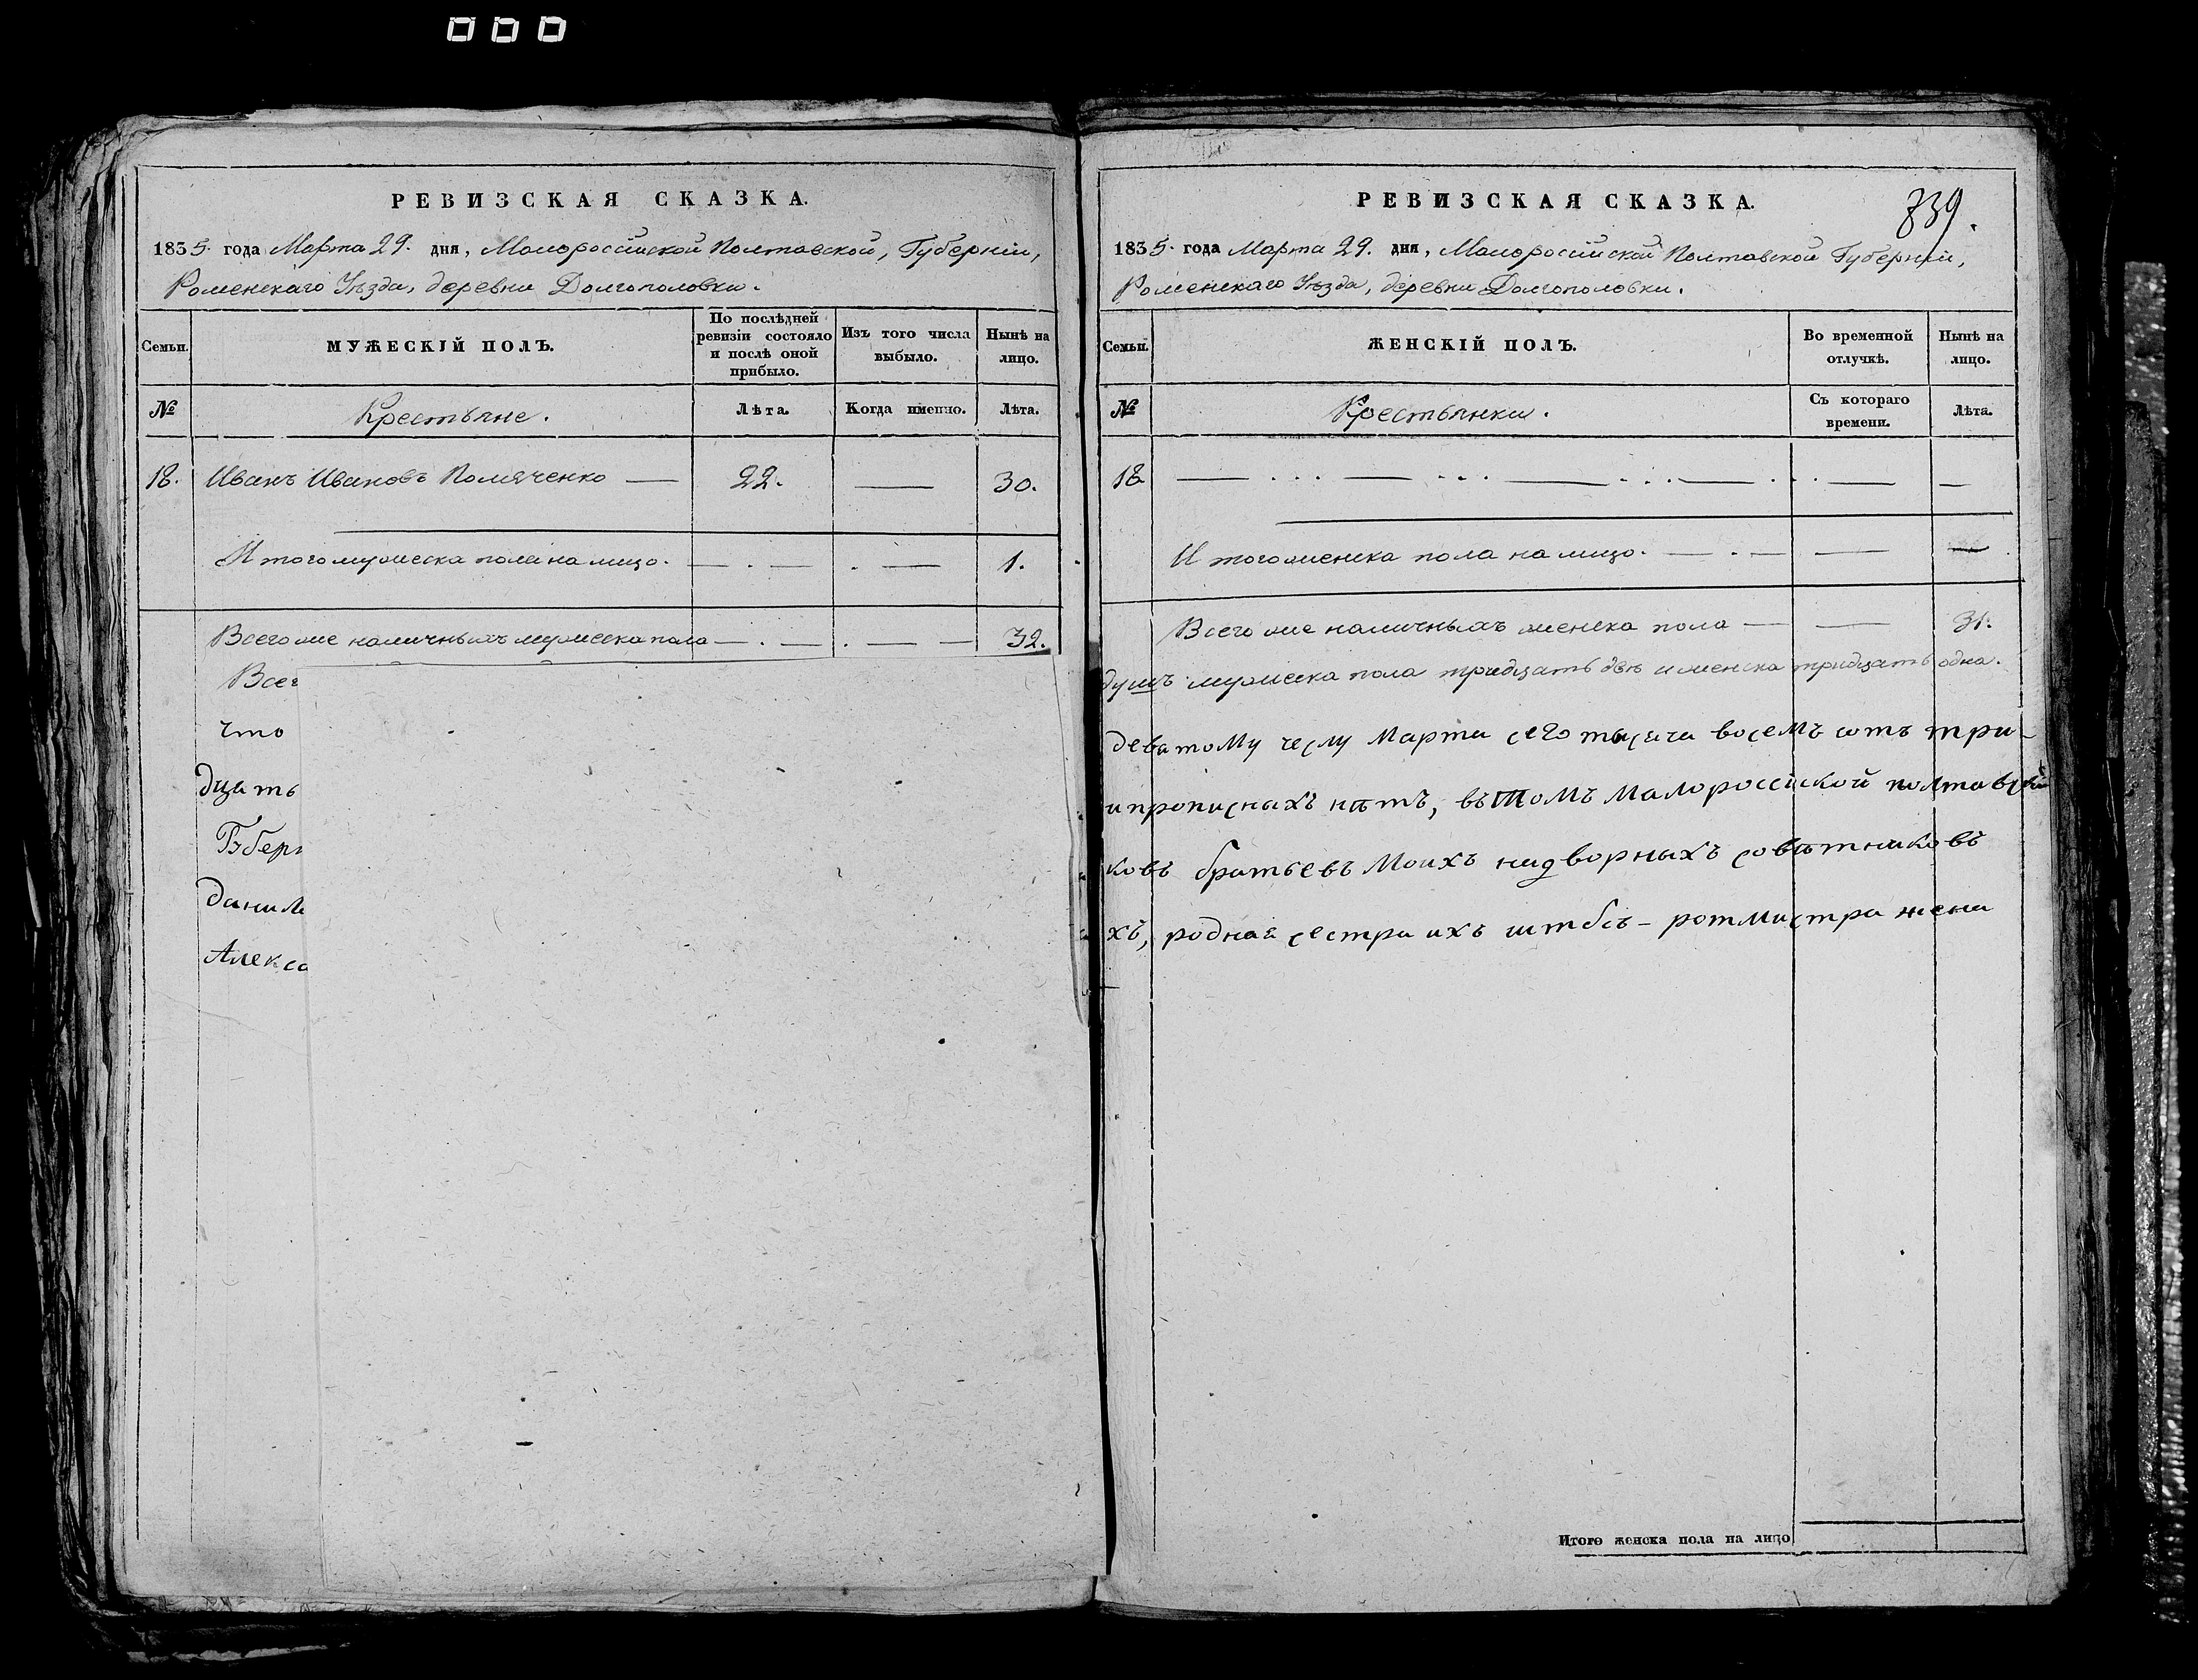 РЕВИЗСКАЯ СКАЗКА.
1835. года Марта 29. дня, Малороссійской Полтавской, Губерніи,
Роменскаго Уѣзда, деревни Долгополовки.
Семьи.
МУЖЕСКІЙ ПОЛЪ.
По послѣдней ревизіи состояло и послѣ оной прибыло.
Изъ того числа выбыло.
Нынѣ на лицо.
№
Крестьяне.
Лѣта.
Когда именно.
Лѣта.
18. Иванъ Ивановъ Помяченко — 22. — 30.
Итого мужеска пола на лицо. — . — . — 1.
Всего же наличныхъ мужеска пола — . — . — — 32.
Всег
что
дцать
Губерн
данил
Алекса
РЕВИЗСКАЯ СКАЗКА.
739.
1835. года Марта 29. дня, Малоросійской Полтавской Губерніи,
Роменскаго Уѣзда, деревни Долгополовки.
Семьи.
ЖЕНСКІЙ ПОЛЪ.
Во временной отлучкѣ.
Нынѣ на лицо.
№
Крестьянки.
Съ котораго времени.
Лѣта.
18. — . . . — . . . — . . . — . . — —
Итого женска пола на лицо. — . — — —
Всего же наличныхъ женска пола — — 31.
душъ мужеска пола тридцать двѣ и женска тридцать одна.
девятому числу Марта сего тысяча восемъ сотъ три-
и прописныхъ нѣтъ, въ томъ Малороссійской полтавской
ковъ братьевъ Моихъ надворныхъ совѣтниковъ
хъ, родная сестра ихъ штабсъ-ротмистра жена
Итого женска пола на лицо